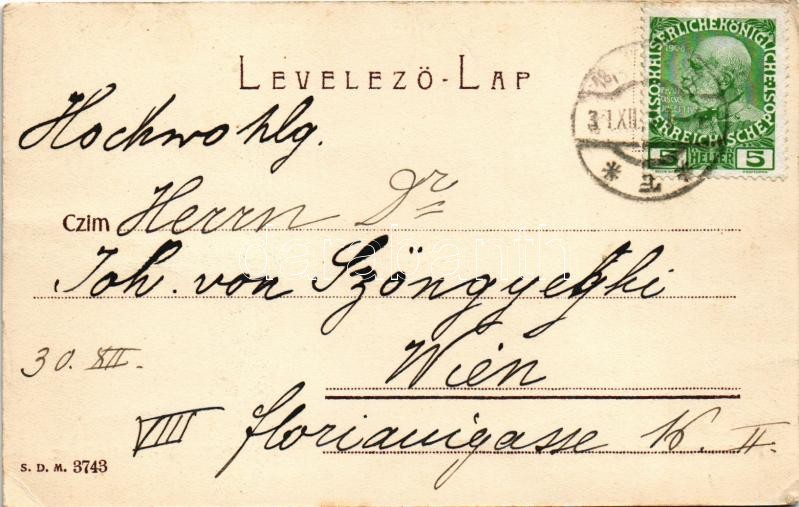 LEVELEZŐ-LAP
KAISERLICHE KÖNIGLICHE
ÖSTERREICHISCHE POST
1908
5 HELLER 5
31.XII
Hochwohlg.
Czim Herrn Dr
Joh. von Szöngyeghi
Wien
30. XII.
VIII Florianigasse 16. II.
S. D. M. 3743